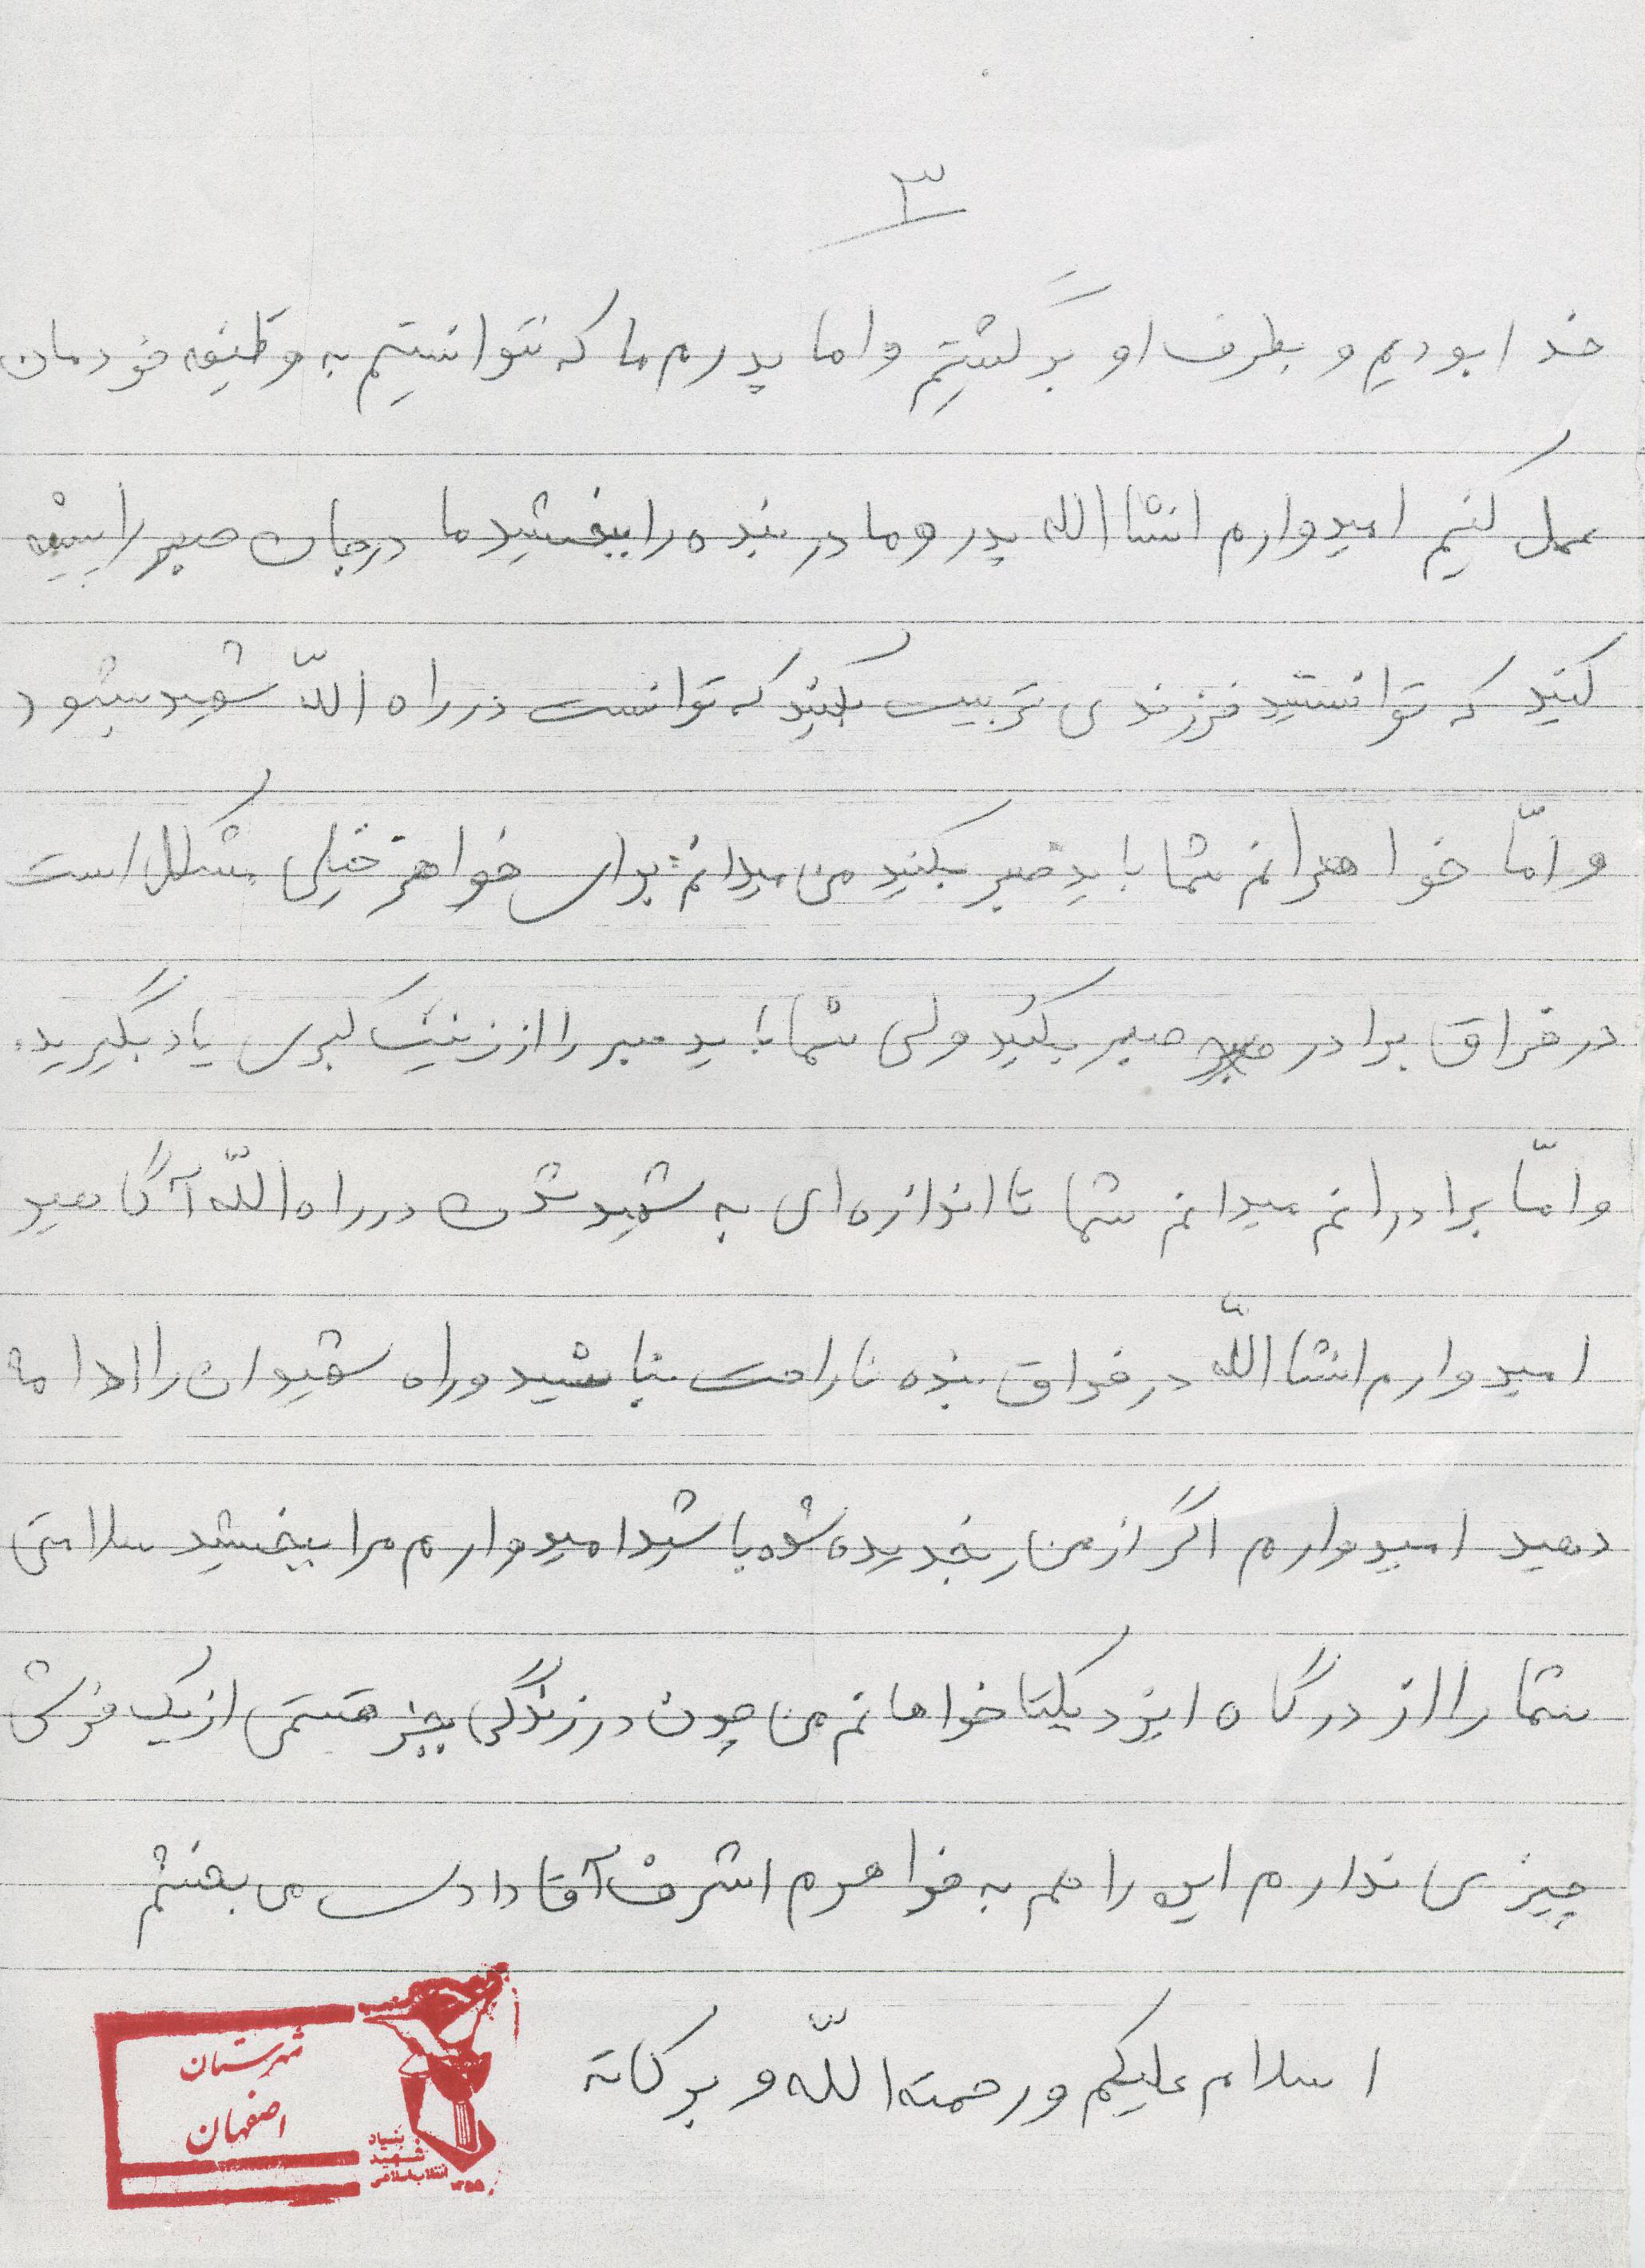 ۳
خدا بودیم و بطرف او برگشتیم و اما پدرم ما که نتوانستیم به وظیفه خودمان
عمل کنیم امیدوارم انشاالله پدر و مادر بنده را ببخشید ما درجات صبر را پیشه
کنید که توانستید فرزندی تربیت بکنید که توانست در راه اللّه شهید بشود
و امّا خواهرانم شما باید صبر بکنید من میدانم برای خواهر خیلی مشکل است
در فراق برادر صبر بکنید ولی شما باید صبر را از زینب کبری یاد بگیرید.
و امّا برادرانم میدانم شما تا اندازه ای به شهید شدن در راه اللّه آگاهید
امیدوارم انشا اللّه در فراق بنده ناراحت نباشید و راه شهیدان را ادامه
دهید امیدوارم اگر از من رنجدیده شده باشید امیدوارم مرا ببخشید سلامتی
شما را از درگاه ایزد یکتا خواهانم من چون در زندگی بجز قسمتی از یک فرشی
چیزی ندارم این را هم به خواهرم اشرف آقادادی می بخشم
اسلام علیکم و رحمته اللّه و برکاته
شهرستان
اصفهان
بنیاد
شهید
انقلاب اسلامی